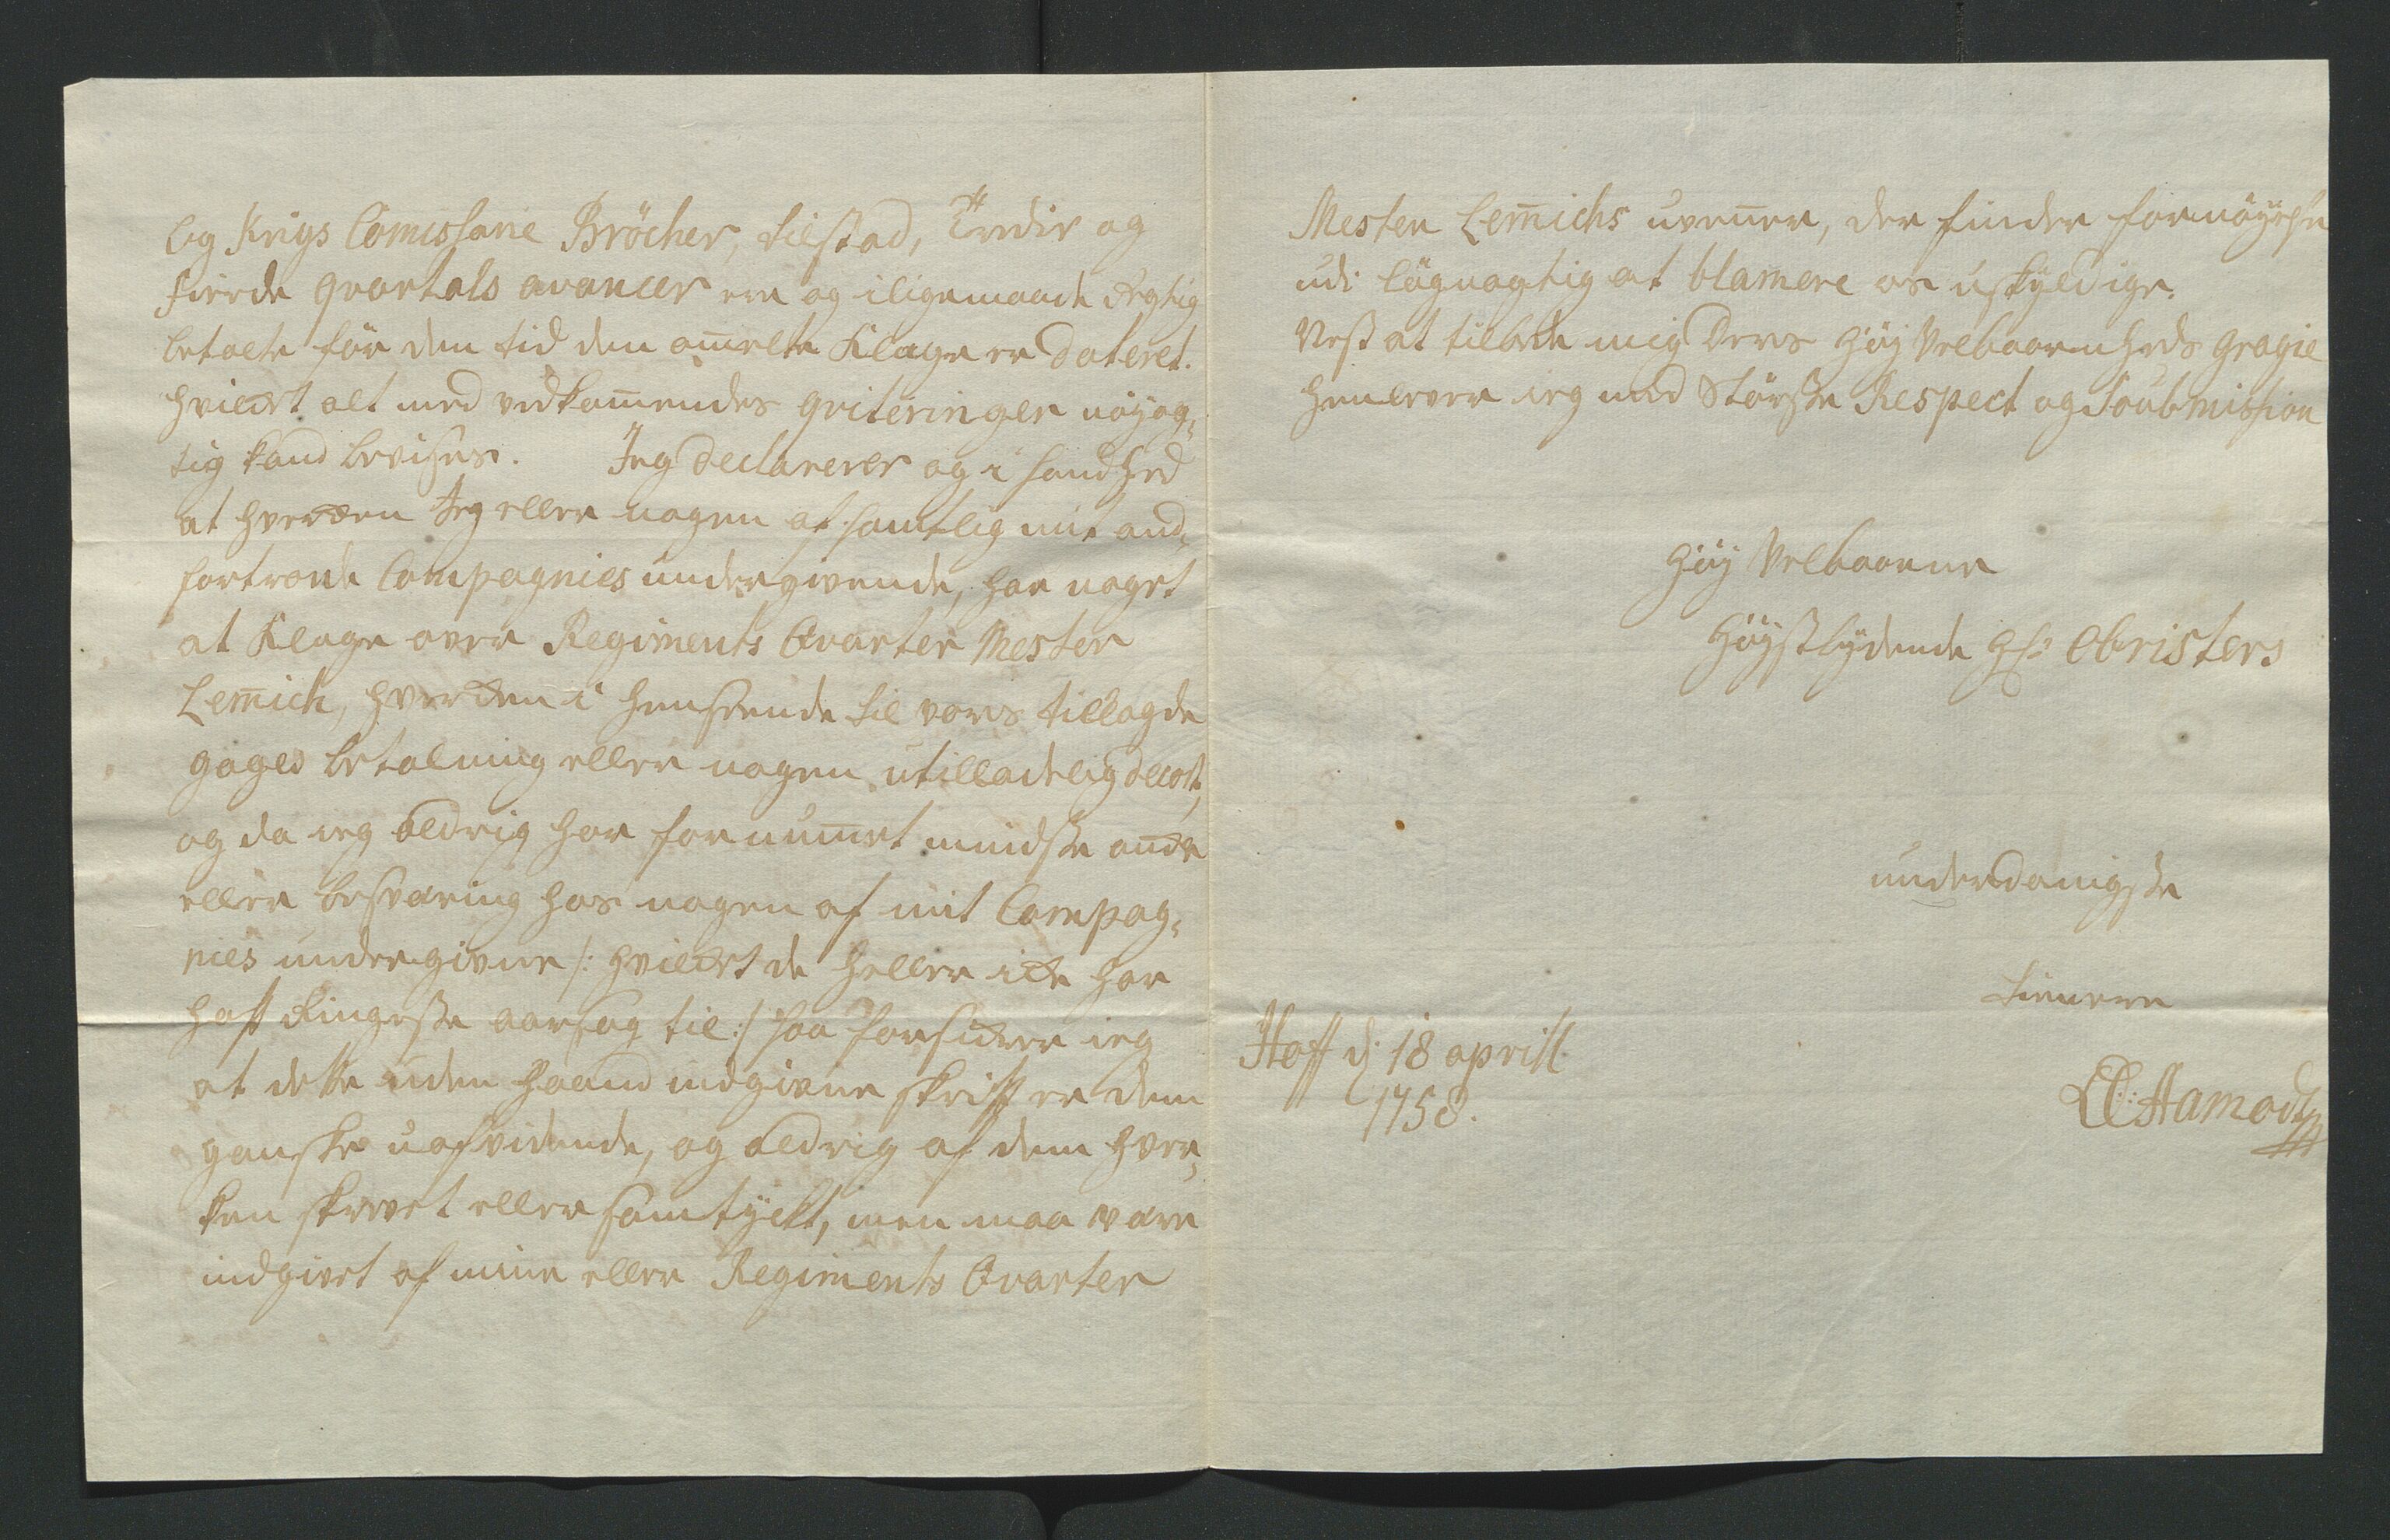 Og Krigs Comissarie Bröcher, tilstod, Tredie og
fierde qvartals avancer ere og iligemaade Rigtig
betalte för den tid den ommelte Klage er Dateret.
hvilket alt med vedkommendes qviteringer nöyag¬
tig kand bevises. Jeg Declarerer og i sandhed
at hverken Jeg eller nogen af samtlig mit and¬
fortroede Compagnies undergivende, har noget
at Klage over Regiments Qvarter Mester
Lemich, hverken i henseende til vores tillagde
gages betalning eller nogen utilladelig decort,
og da ieg aldrig har fornummet mindste anke
eller besværing hos nogen af mit Compag¬
nies undergivne /: hvilket de heller icke har
haft Ringeste aarsag til :/ saa forsikrer ieg
at dette uden haand indgivne skrift er dem
ganske uafvidende, og aldrig af dem hver¬
ken skrevet eller samtyckt, men maa være
indgivet af mine eller Regiments Qvarter
Mester Lemichs uvenner, der finder fornöyelse
udi lögnagtig at blamere os uskyldige.
Nest at tilbede mig Deres Höy Velbaarenheds gragie
henlever ieg med Störste Respect og Soubmission
Höy Velbaarne
Höystbydende Hr: Obristers
underdanigste
tienere
Hoff d: 18 aprill
1758.
Aamodt